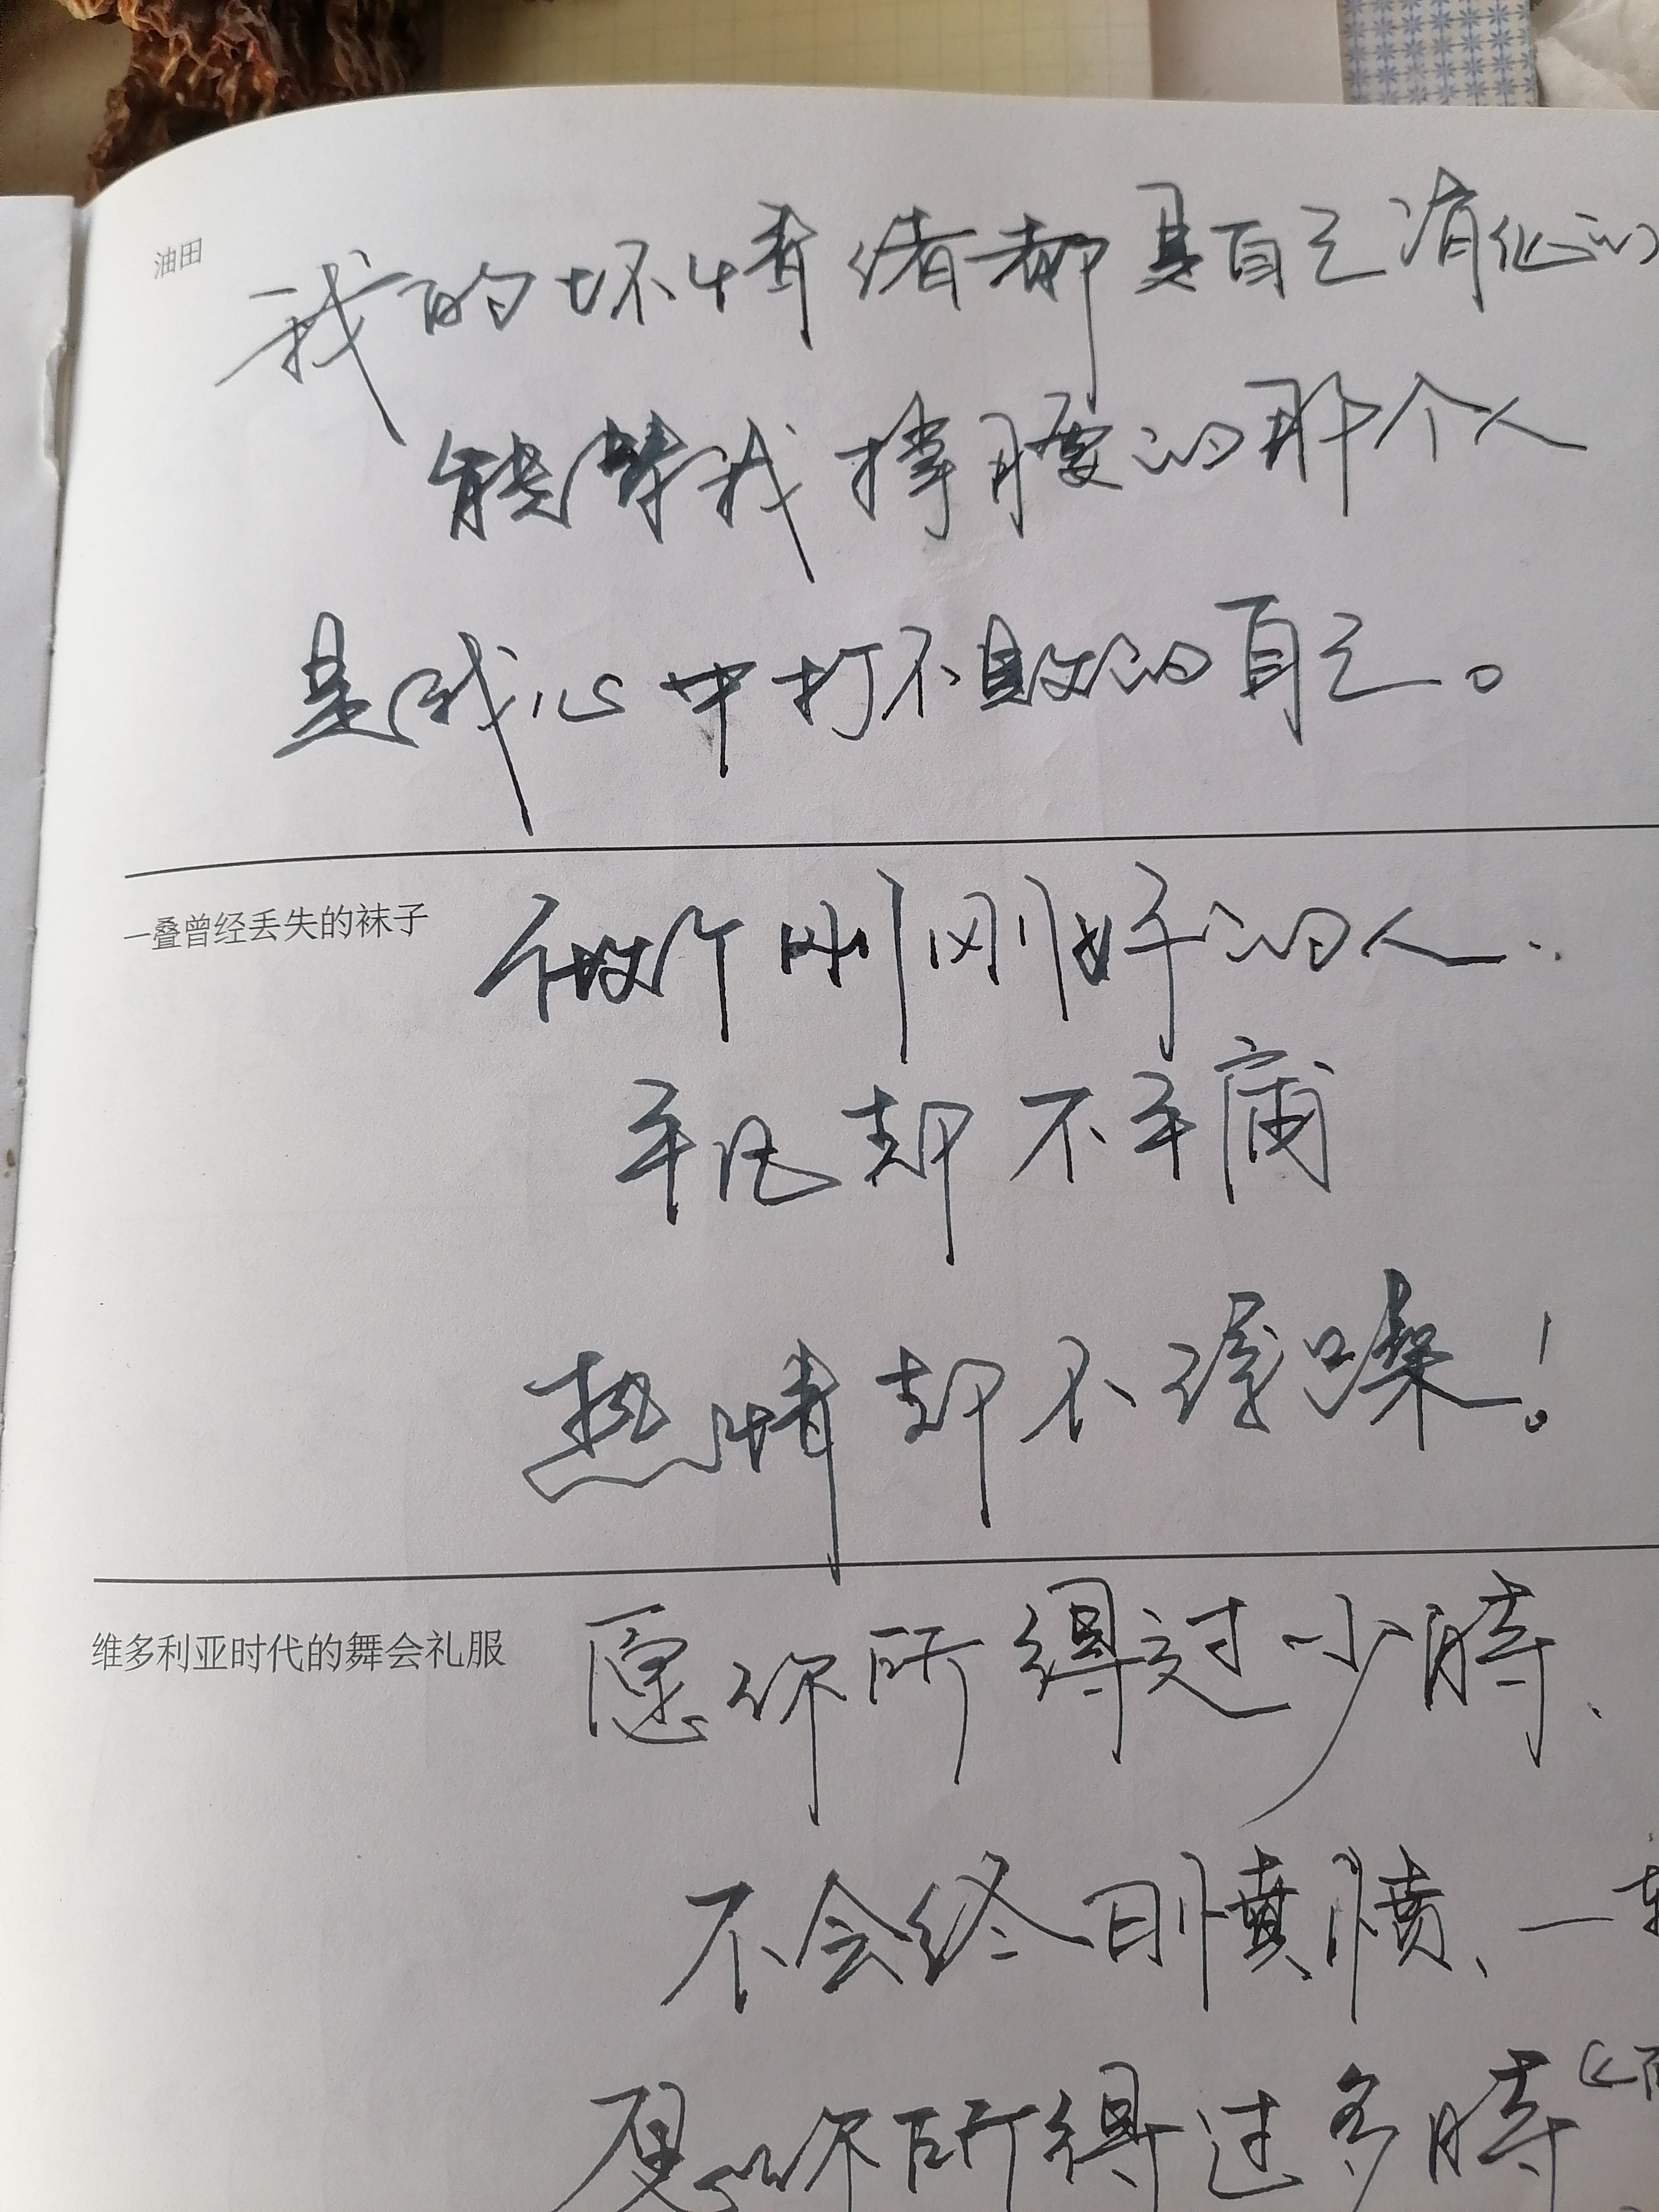 油田
我的坏情绪都是自己消化的
能替我撑腰的那个人
是我心中打不败的自己。
一叠曾经丢失的袜子
做个刚刚好的人.
平凡却不平庸
热情却不聒噪!
维多利亚时代的舞会礼服
愿你所得过少时、
不会终日愤愤、一
愿你所得过多时